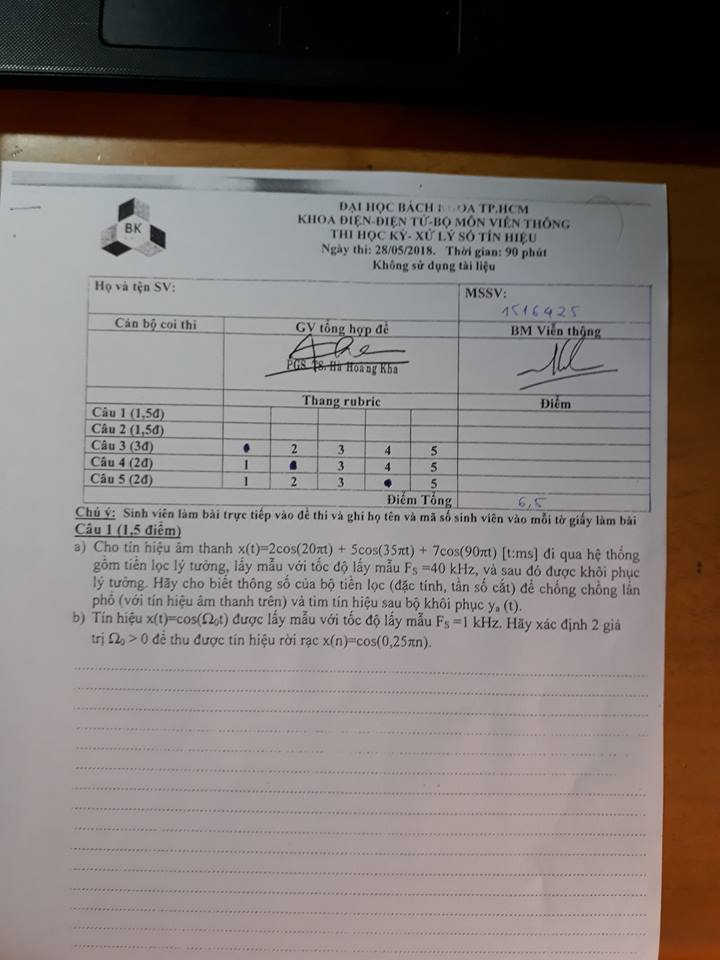 BK
ĐẠI HỌC BÁCH KHOA TP.HCM
KHOA ĐIỆN-ĐIỆN TỬ-BỘ MÔN VIỄN THÔNG
THI HỌC KỲ- XỬ LÝ SỐ TÍN HIỆU
Ngày thi: 28/05/2018. Thời gian: 90 phút
Không sử dụng tài liệu
Họ và tện SV:
MSSV:
1516425
Cán bộ coi thi
GV tổng hợp đề
BM Viễn thộng
PGS. TS. Hà Hoàng Kha
Thang rubric
Điểm
Câu 1 (1,5đ)
Câu 2 (1,5đ)
Câu 3 (3đ) 2 3 4 5
Câu 4 (2đ) 1 3 4 5
Câu 5 (2đ) 1 2 3 5
Điểm Tổng 6,5
Chú ý: Sinh viên làm bài trực tiếp vào đề thi và ghi họ tên và mã số sinh viên vào mỗi tờ giấy làm bài
Câu 1 (1,5 điểm)
a) Cho tín hiệu âm thanh x(t)=2cos(20πt) + 5cos(35πt) + 7cos(90πt) [t:ms] đi qua hệ thống
gồm tiền lọc lý tưởng, lấy mẫu với tốc độ lấy mẫu FS =40 kHz, và sau đó được khôi phục
lý tưởng. Hãy cho biết thông số của bộ tiền lọc (đặc tính, tần số cắt) để chống chồng lấn
phổ (với tín hiệu âm thanh trên) và tìm tín hiệu sau bộ khôi phục ya (t).
b) Tín hiệu x(t)=cos(Ω0t) được lấy mẫu với tốc độ lấy mẫu FS =1 kHz. Hãy xác định 2 giá
trị Ω0 > 0 để thu được tín hiệu rời rạc x(n)=cos(0,25πn).